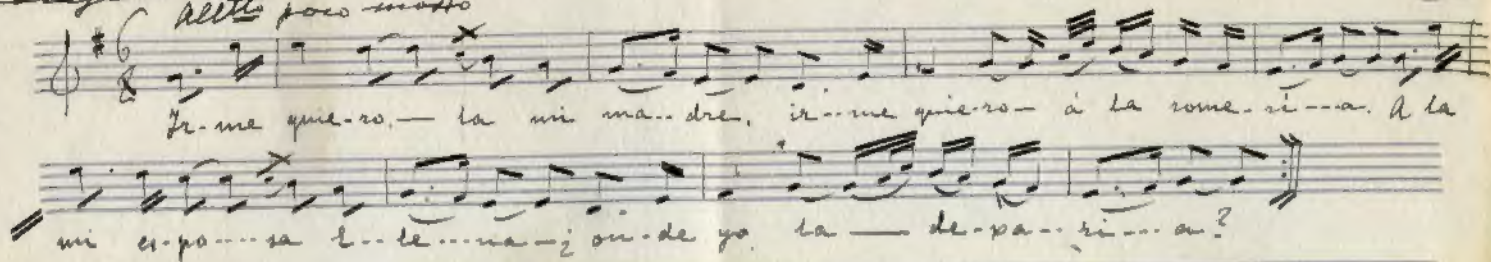 Alltto poco mosso
6
8
Ir-me quie-ro,— la mi ma--dre, ir--me quie-ro— á la rome-rí---a. A la
mi es-po----sa E--le---na—¿on-de yo la — de-xa--rí---a?